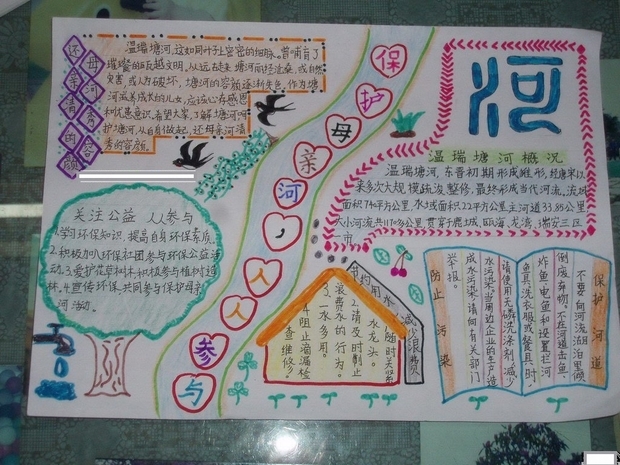 还母亲河清秀的容颜
温瑞塘河,这如同叶子上密密的细脉,曾哺育了
璀璨的瓯越文明,从远古走来,塘河而经沧桑,或自然
灾害,或人为破坏,塘河的容颜逐渐失色,作为塘
河滋养成长的儿女,应该心存感恩
和忧患意识,希望大家,了解塘河,呵
护塘河,从自身做起,还母亲河清
秀的容颜。
保护母亲河,人人参与
河
温瑞塘河概况
温瑞塘河,东晋初期形成雏形,经唐宋以
来多次大规模疏浚整修,最终形成当代河流,流域
面积740平方公里,水域面积22平方公里主河道33.85公里,
大小河流共1170多公里,贯穿鹿城,瓯海,龙湾,瑞安三区
一市
关注公益 人人参与
1.学习环保知识,提高自身环保素质。
2.积极加入环保社团参与环保公益活
动。3.爱护花草树木,积极参与植树造
林。4.宣传环保,共同参与保护母亲
河活动。
节约用水,减少浪费
1.随时关紧
水龙头。
2.请及时制止
浪费水的行为。
3.一水多用。
4.阻止滴漏检
查维修。
保护河道
不要向河流湖泊里倾
倒废弃物。不在河道击鱼、
炸鱼、电鱼和设置拦河
鱼具、洗衣服或餐具时,
请使用无磷洗涤剂,减少
水污染。当周边企业的生产造
成水污染,请向有关部门
举报。
防止污染